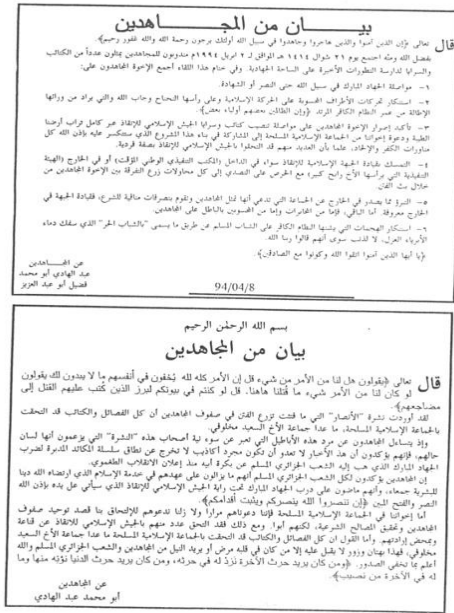 بيـــان من المجـــاهدين
قال تعالى ﴿إن الذين آمنوا والذين هاجروا وجاهدوا في سبيل الله أولئك يرجون رحمة الله والله غفور رحيم﴾.
بفضل الله ومنّه اجتمع يوم ٢١ شوال ١٤١٤ هـ الموافق لـ ٢ ابريل ١٩٩٤م مندوبون للمجاهدين يمثلون عدداً من الكتائب
والسرايا لدارسة التطورات الأخيرة على الساحة الجهادية. وفي ختام هذا اللقاء أجمع الإخوة المجاهدون على:
١- مواصلة الجهاد المبارك في سبيل الله حتى النصر أو الشهادة.
٢- استنكار تحركات الأطراف المحسوبة على الحركة الإسلامية وعلى رأسها النحناح وجاب الله والتي يراد من ورائها
الإطالة من عمر النظام الكافر المرتد ﴿وإن الظالمين بعضهم أولياء بعض﴾.
٣- تأكيد إصرار الإخوة المجاهدين على مواصلة تنصيب كتائب وسرايا الجيش الإسلامي للإنقاذ عبر كامل تراب أرضنا
الطيبة ودعوة إخواننا من الجماعة الإسلامية المسلحة إلى المشاركة في بناء هذا المشروع الذي ستنكسر عليه بإذن الله كل
مناورات الكفر والإلحاد، علما بأن العديد منهم قد التحقوا بالجيش الإسلامي للإنقاذ بصفة فردية.
٤- التمسك بقيادة الجبهة الإسلامية للإنقاذ سواء في الداخل (المكتب التنفيذي الوطني المؤقت) أو في الخارج (الهيئة
التنفيذية التي يرأسها الأخ رابح كبير) مع الحرص على التصدي إلى كل محاولات زرع التفرقة بين الإخوة المجاهدين من
خلال بث الفتن.
٥- التبرؤ مما يصدر في الخارج عن الجماعة التي تدعي أنها تمثل المجاهدين وتقوم بتصرفات منافية للشرع، فقيادة الجبهة في
الخارج معروفة. أما الباقي، فإما من المخابرات وإما من المحسوبين بالباطل على المجاهدين.
٦- استنكار الهجمات التي يشنها النظام الكافر على الشباب المسلم عن طريق ما يسمى "بالشباب الحر" الذي سفك دماء
الأبرياء العزل، لا لذنب سوى أنهم قالوا ربنا الله.
﴿يا أيها الذين آمنوا اتقوا الله وكونوا مع الصادقين﴾.
عن المجاهدين
عبد الهادي أبو محمد
فضيل أبو عبد العزيز
94/04/8
بسم الله الرحمن الرحيم
بيان من المجاهدين
قال تعالى ﴿يقولون هل لنا من الأمر من شيء قل إن الأمر كله لله يُخفون في أنفسهم ما لا يبدون لك يقولون
لو كان لنا من الأمر شيء ما قُتلنا هاهنا. قل لو كنتم في بيوتكم لبرز الذين كُتب عليهم القتل إلى
مضاجعهم﴾.
لقد أوردت نشرة "الأنصار" التي ما فتئت تزرع الفتن في صفوف المجاهدين أن كل الفصائل والكتائب قد التحقت
بالجماعة الإسلامية المسلحة، ما عدا جماعة الأخ السعيد مخلوفي.
وإذ يتساءل المجاهدون عن مرد هذه الأباطيل التي تعبر عن سوء نية أصحاب هذه "النشرة" التي يزعمون أنها لسان
حالهم، فإنهم يؤكدون أن هذ الأخبار لا تعدو أن تكون مجرد أكاذيب لا تخرج عن نطاق سلسلة المكائد المدبرة لضرب
الجهاد المبارك الذي هب إليه الشعب الجزائري المسلم عن بكرة أبيه منذ إعلان الانقلاب الطغموي.
إن المجاهدين يؤكدون لكل الشعب الجزائري المسلم أنهم ما يزالون على عهدهم في خدمة الإسلام الذي ارتضاه الله دينا
للبشرية جمعاء، وأنهم ماضون على درب الجهاد المبارك تحت راية الجيش الإسلامي للإنقاذ الذي سيأتي على يده بإذن الله
النصر والفتح المبين ﴿إن تنصروا الله ينصركم ويثبت أقدامكم﴾.
أما إخواننا في الجماعة الإسلامية المسلحة فإننا دعوناهم مرارا ولا زلنا ندعوهم للإلتحاق بنا قصد توحيد صفوف
المجاهدين وتحقيق المصالح الشرعية، لكنهم أبوا. ومع ذلك فقد التحق عدد منهم بالجيش الإسلامي للإنقاذ عن قناعة
وبمحض إرادتهم. وأما القول ان كل الفصائل والكتائب قد التحقت بالجماعة الإسلامية المسلحة ما عدا جماعة الأخ السعيد
مخلوفي، فهذا بهتان وزور لا يقبل عليه إلا من كان في قلبه مرض أو يريد النيل من المجاهدين والشعب الجزائري المسلم والله
أعلم بما تخفى الصدور. ﴿ومن كان يريد حرث الآخرة نزد له في حرثه، ومن كان يريد حرث الدنيا نؤته منها وما
له في الآخرة من نصيب﴾.
عن المجاهدين
أبو محمد عبد الهادي